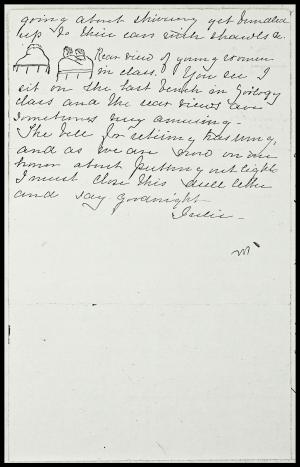 going about shivering yet bundled
up to their ears with shawls &c.
Rear view of young women
in class. You see I
sit on the last bench in Geology
class and the rear views are
sometimes very amusing -
The bell for retiring has rung,
and as we are now on our
honor about putting out lights
I must close this dull letter
and say Goodnight -
Julie -